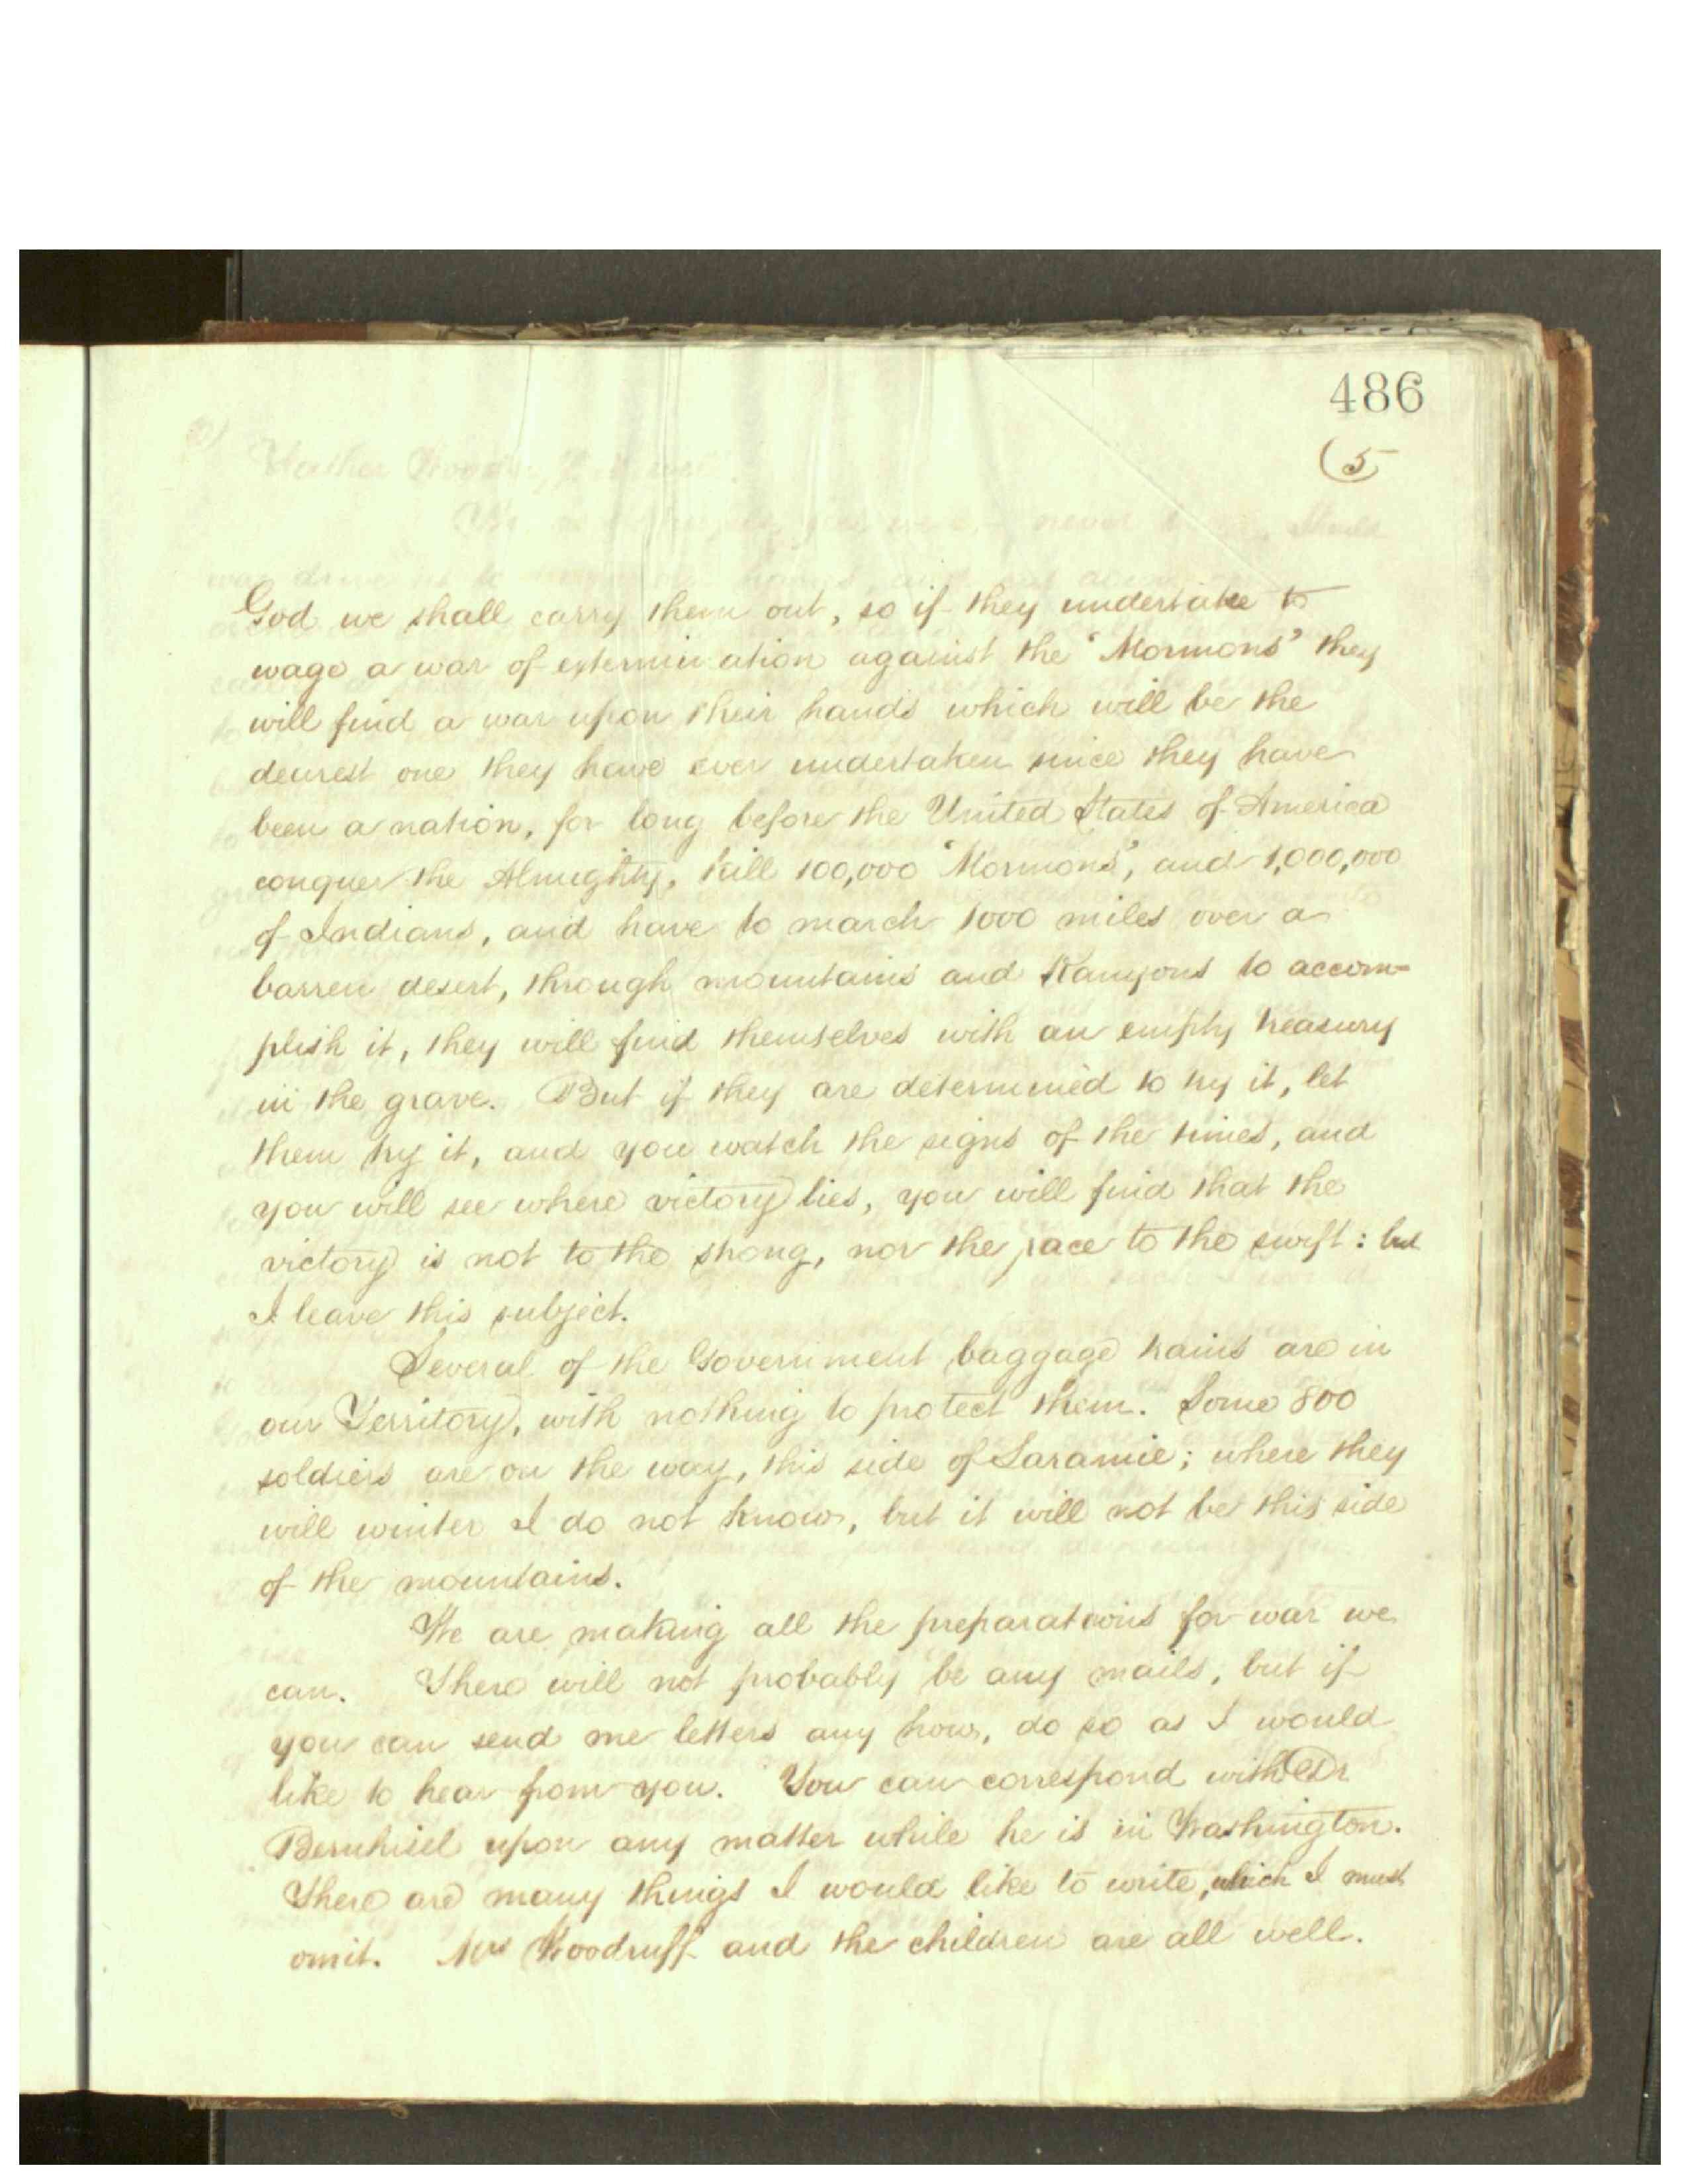 486
(5
God we shall carry them out, so if they undertake to
wage a war of extermination against the "Mormons" they
will find a war upon their hands which will be the
dearest one they have ever undertaken since they have
been a nation, for long before the United States of America
conquer the Almighty, kill 100,000 "Mormons", and 1,000,000
of Indians, and have to march 1000 miles over a
barren desert, through mountains and Kanyons to accom-
plish it, they will find themselves with an empty treasury
in the grave. But if they are determined to try it, let
them try it, and you watch the signs of the times, and
you will see where victory lies, you will find that the
victory is not to the strong, nor the race to the swift: but
I leave this subject.
Several of the Government baggage trains are in
our Territory, with nothing to protect them. Some 800
soldiers are on the way, this side of Laramie; where they
will winter I do not know, but it will not be this side
of the mountains.
We are making all the preparations for war we
can. There will not probably be any mails, but if
you can send me letters any how, do so as I would
like to hear from you. You can correspond with Dr
Bernhisel upon any matter while he is in Washington.
There are many things I would like to write, which I must
omit. Mrs Woodruff and the children are all well.